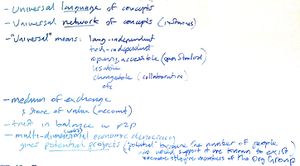 - Universal language of concepts
- Universal network of concepts (instances)
- "Universal" means: lang-independent
tech-independent
openly accessible (open standard)
usable
changeable (collaborative)
etc
- medium of exchange
& store of value (account)
- trust in balance w P2P
- multi-dimensional economic democracy
gives potential projects ("potential" because the number of people
who would support it are known to exist
because they are members of the Org Group